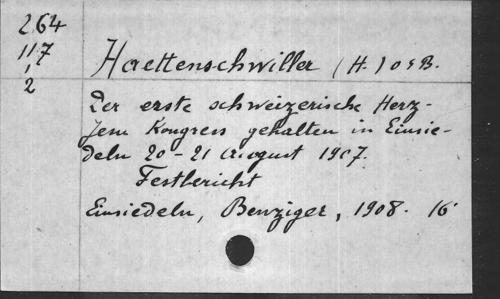 264
117
1
2
Haettenschwiller (H.) OSB.
Der erste schweizerische Herz-
Jesu Kongress gehalten in Einsie-
deln 20-21 August 1907.
Festbericht
Einsiedeln, Benziger, 1908. 16°